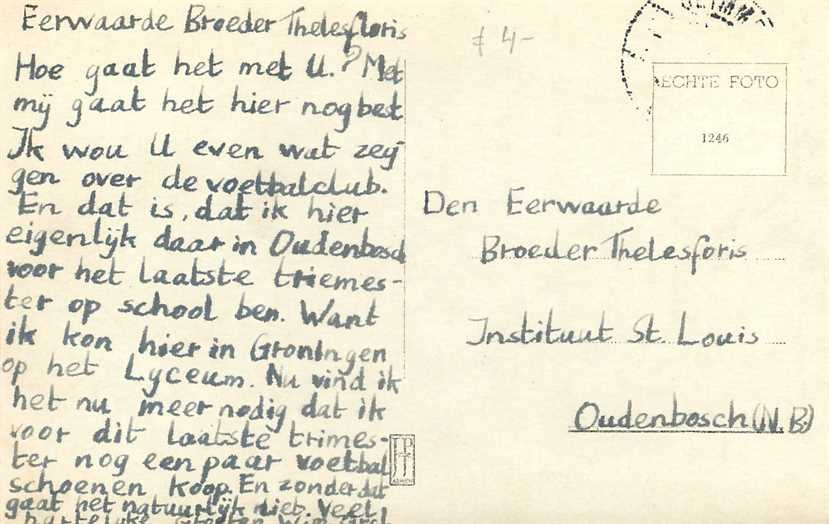 Eerwaarde Broeder Thelesfloris
Hoe gaat het met U.? Met
mij gaat het hier nog best
Ik wou U even wat zeg
gen over de voetbalclub.
En dat is, dat ik hier
eigenlijk daar in Oudenbosch
voor het laatste triemes-
ter op school ben. Want
ik kon hier in Groningen
op het Lyceum. Nu vind ik
het nu meer nodig dat ik
voor dit laatste trimes-
ter nog een paar voetbal
schoenen koop. En zonder dat
gaat het natuurlijk niet. Veel
hartelijke Groeten Wim
£ 4-
ECHTE FOTO
1246
Den Eerwaarde
Broeder Thelesforis
Instituut St. Louis
Oudenbosch (N.B.)